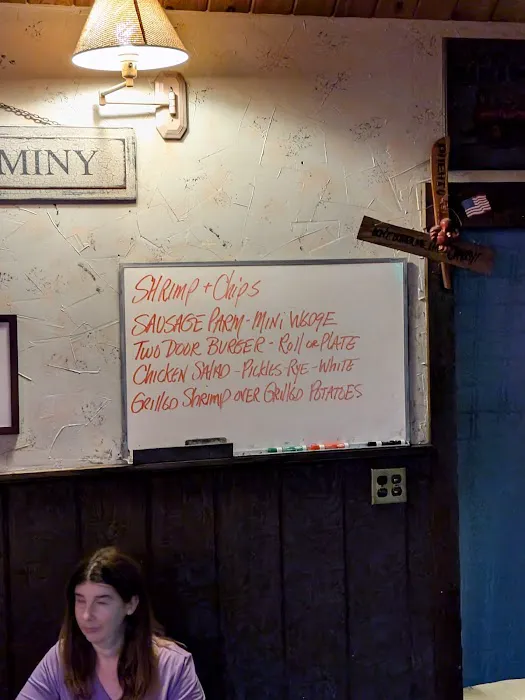 MINY
SHRIMP + CHIPS
SAUSAGE PARM - MINI WEDGE
TWO DOOR BURGER - ROLL OR PLATE
CHICKEN SALAD - PICKLES - RYE - WHITE
GRILLED SHRIMP OVER GRILLED POTATOES